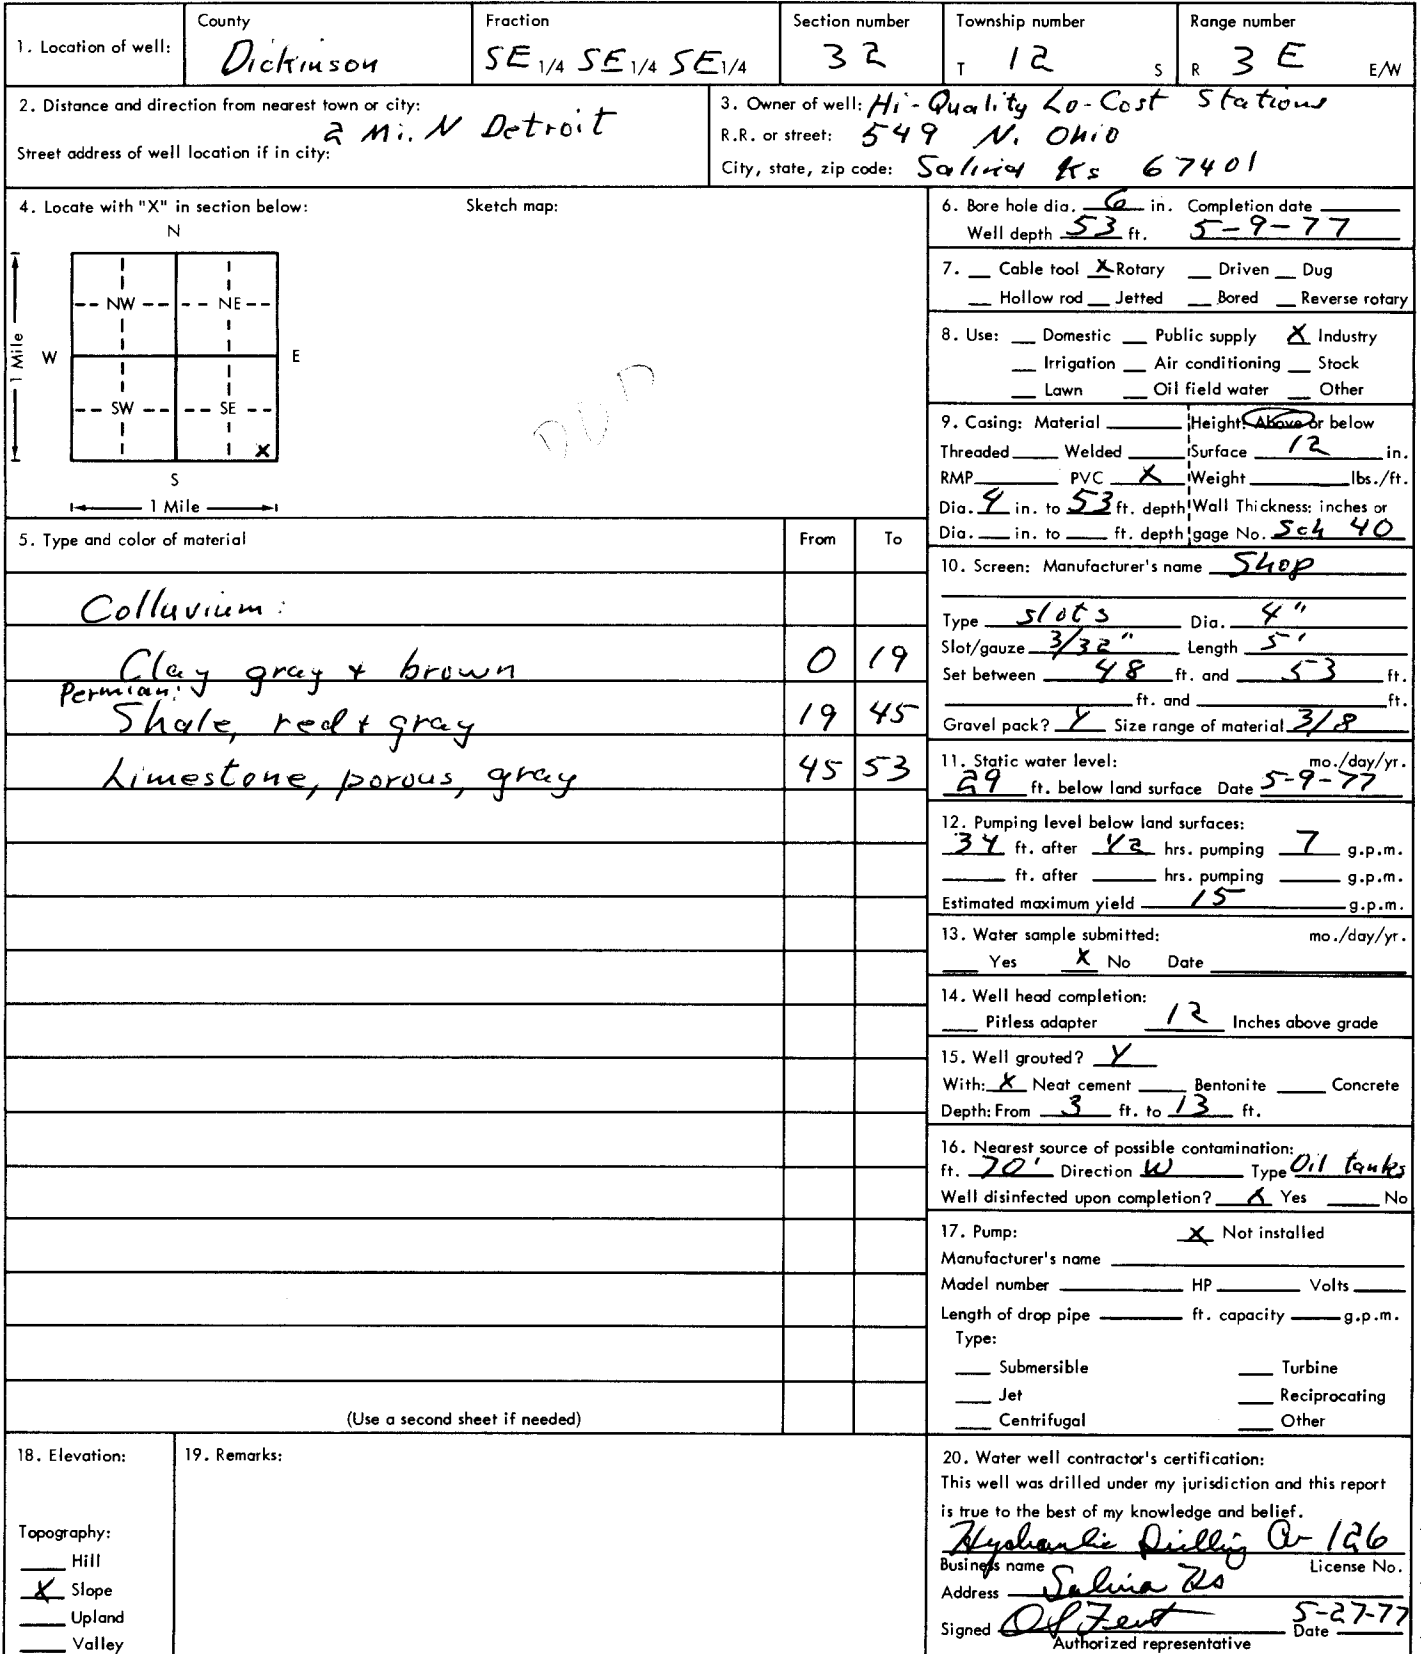 1. Location of well:
County
Dickinson
Fraction
SE 1/4 SE 1/4 SE 1/4
Section number
32
Township number
T 12 S
Range number
R 3 E E/W
2. Distance and direction from nearest town or city:
2 Mi. N Detroit
Street address of well location if in city:
3. Owner of well: Hi-Quality Lo-Cost Stations
R.R. or street: 549 N. Ohio
City, state, zip code: Salina Ks 67401
4. Locate with "X" in section below:
Sketch map:
N
NW NE
W E
1 Mile
SW SE
X
S
1 Mile
DUP
5. Type and color of material From To
Colluvium:
Clay gray + brown 0 19
Permian:
Shale, red + gray 19 45
Limestone, porous, gray 45 53
(Use a second sheet if needed)
6. Bore hole dia. 6 in. Completion date
Well depth 53 ft. 5-9-77
7. Cable tool X Rotary Driven Dug
Hollow rod Jetted Bored Reverse rotary
8. Use: Domestic Public supply X Industry
Irrigation Air conditioning Stock
Lawn Oil field water Other
9. Casing: Material Height: Above or below
Threaded Welded Surface 12 in.
RMP PVC X Weight lbs./ft.
Dia. 4 in. to 53 ft. depth Wall Thickness: inches or
Dia. in. to ft. depth gage No. Sch 40
10. Screen: Manufacturer's name Shop
Type slots Dia. 4"
Slot/gauze 3/32" Length 5'
Set between 48 ft. and 53 ft.
ft. and ft.
Gravel pack? Y Size range of material 3/8
11. Static water level: mo./day/yr.
29 ft. below land surface Date 5-9-77
12. Pumping level below land surfaces:
34 ft. after 1/2 hrs. pumping 7 g.p.m.
ft. after hrs. pumping g.p.m.
Estimated maximum yield 15 g.p.m.
13. Water sample submitted: mo./day/yr.
Yes X No Date
14. Well head completion:
Pitless adapter 12 Inches above grade
15. Well grouted? Y
With: X Neat cement Bentonite Concrete
Depth: From 3 ft. to 13 ft.
16. Nearest source of possible contamination:
ft. 70' Direction W Type Oil tanks
Well disinfected upon completion? X Yes No
17. Pump: X Not installed
Manufacturer's name
Model number HP Volts
Length of drop pipe ft. capacity g.p.m.
Type:
Submersible Turbine
Jet Reciprocating
Centrifugal Other
18. Elevation:
Topography:
Hill
X Slope
Upland
Valley
19. Remarks:
20. Water well contractor's certification:
This well was drilled under my jurisdiction and this report
is true to the best of my knowledge and belief.
Hydraulic Drilling Co 126
Business name License No.
Address Salina Ks
Signed Fent Date 5-27-77
Authorized representative